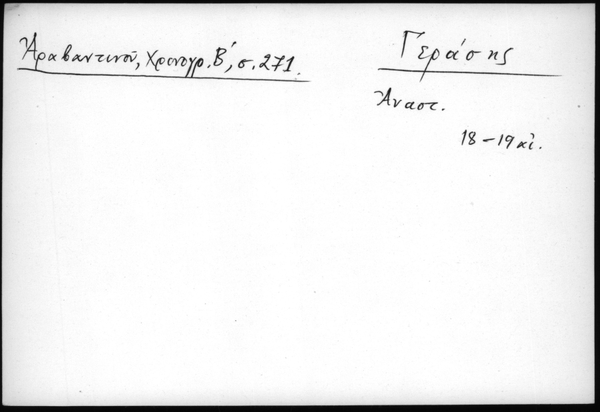 Ἀραβαντινοῦ, Χρονογρ. Β΄, σ. 271.
Γεράσης
Ἀναστ.
18 – 19 αἰ.